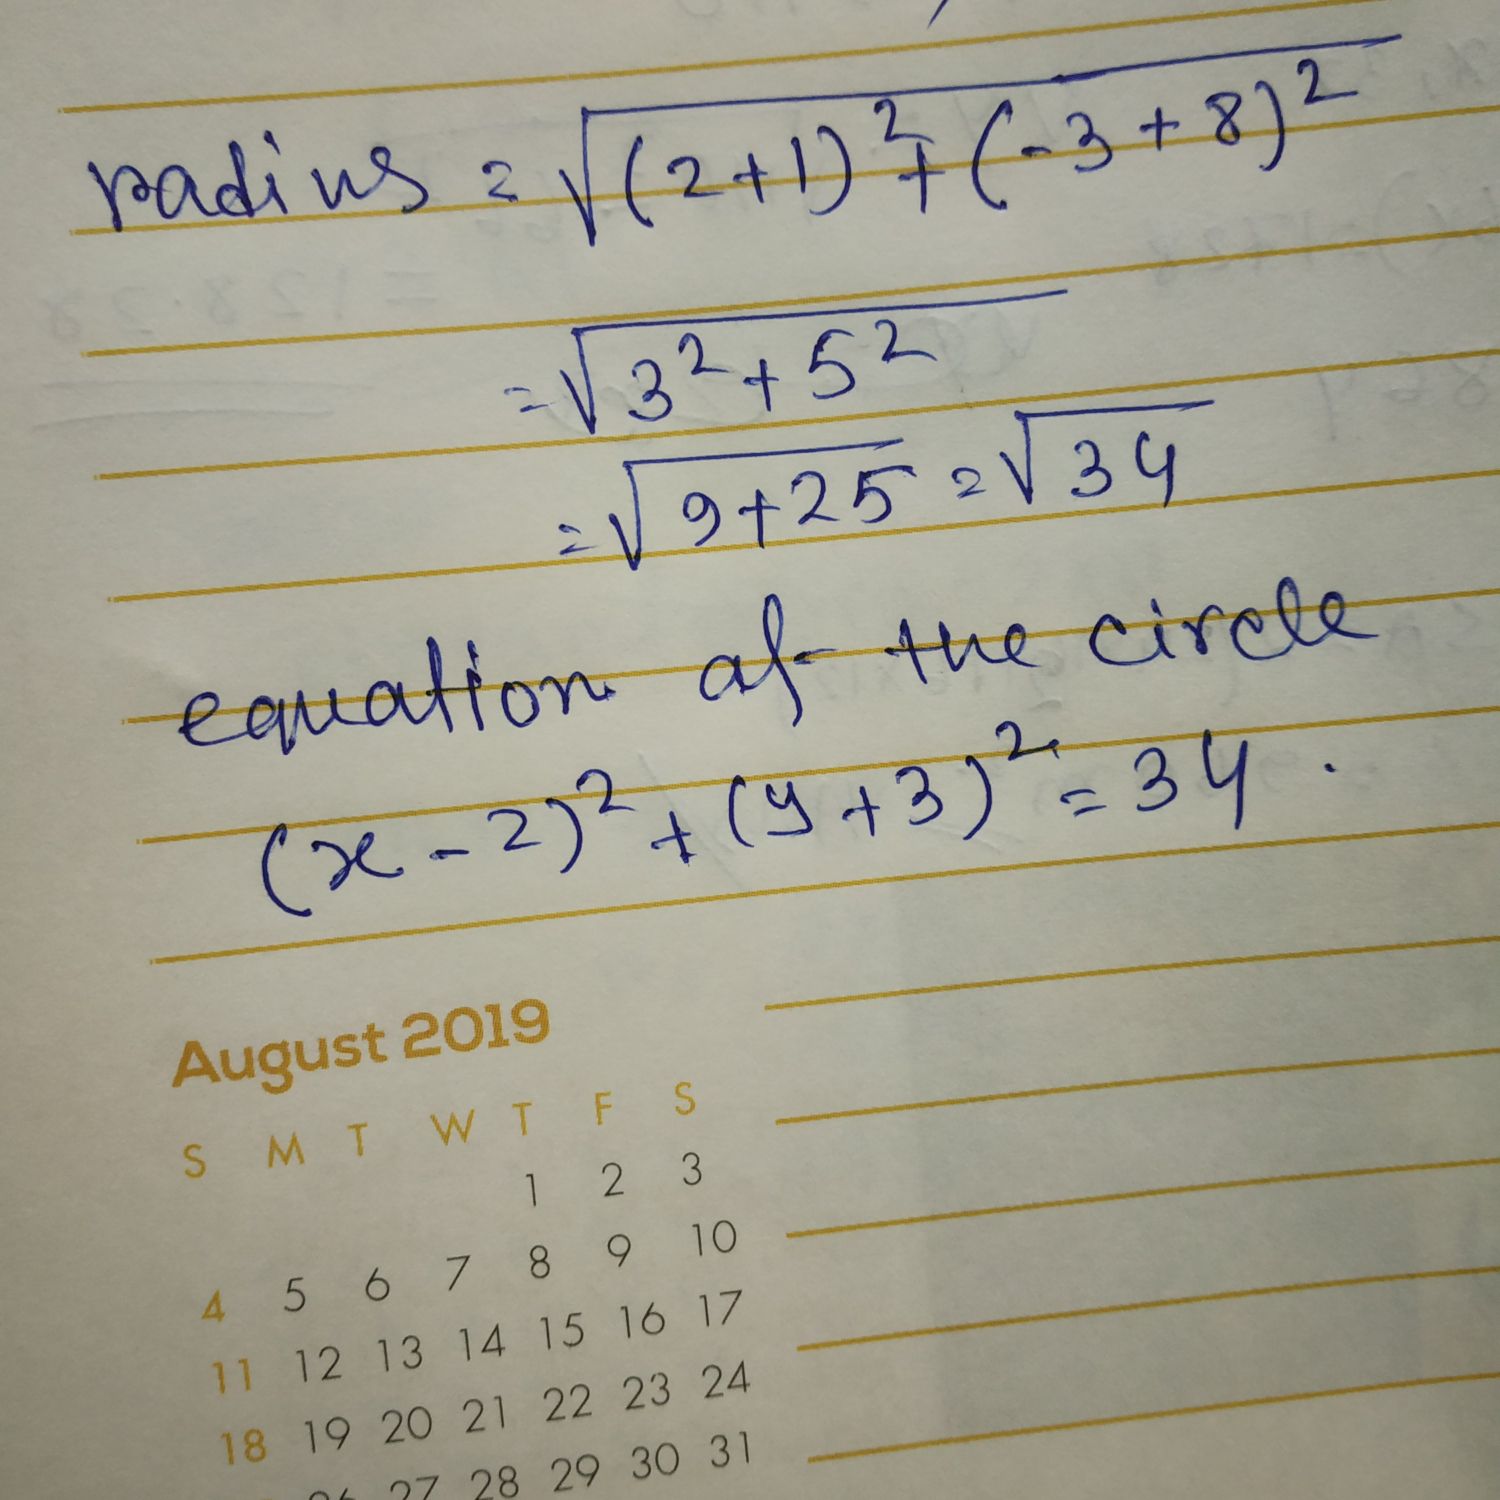 radius = √(2+1)² + (-3+8)²
= √3² + 5²
= √9+25 = √34
equation of the circle
(x - 2)² + (y + 3)² = 34 .
August 2019
S M T W T F S
1 2 3
4 5 6 7 8 9 10
11 12 13 14 15 16 17
18 19 20 21 22 23 24
26 27 28 29 30 31